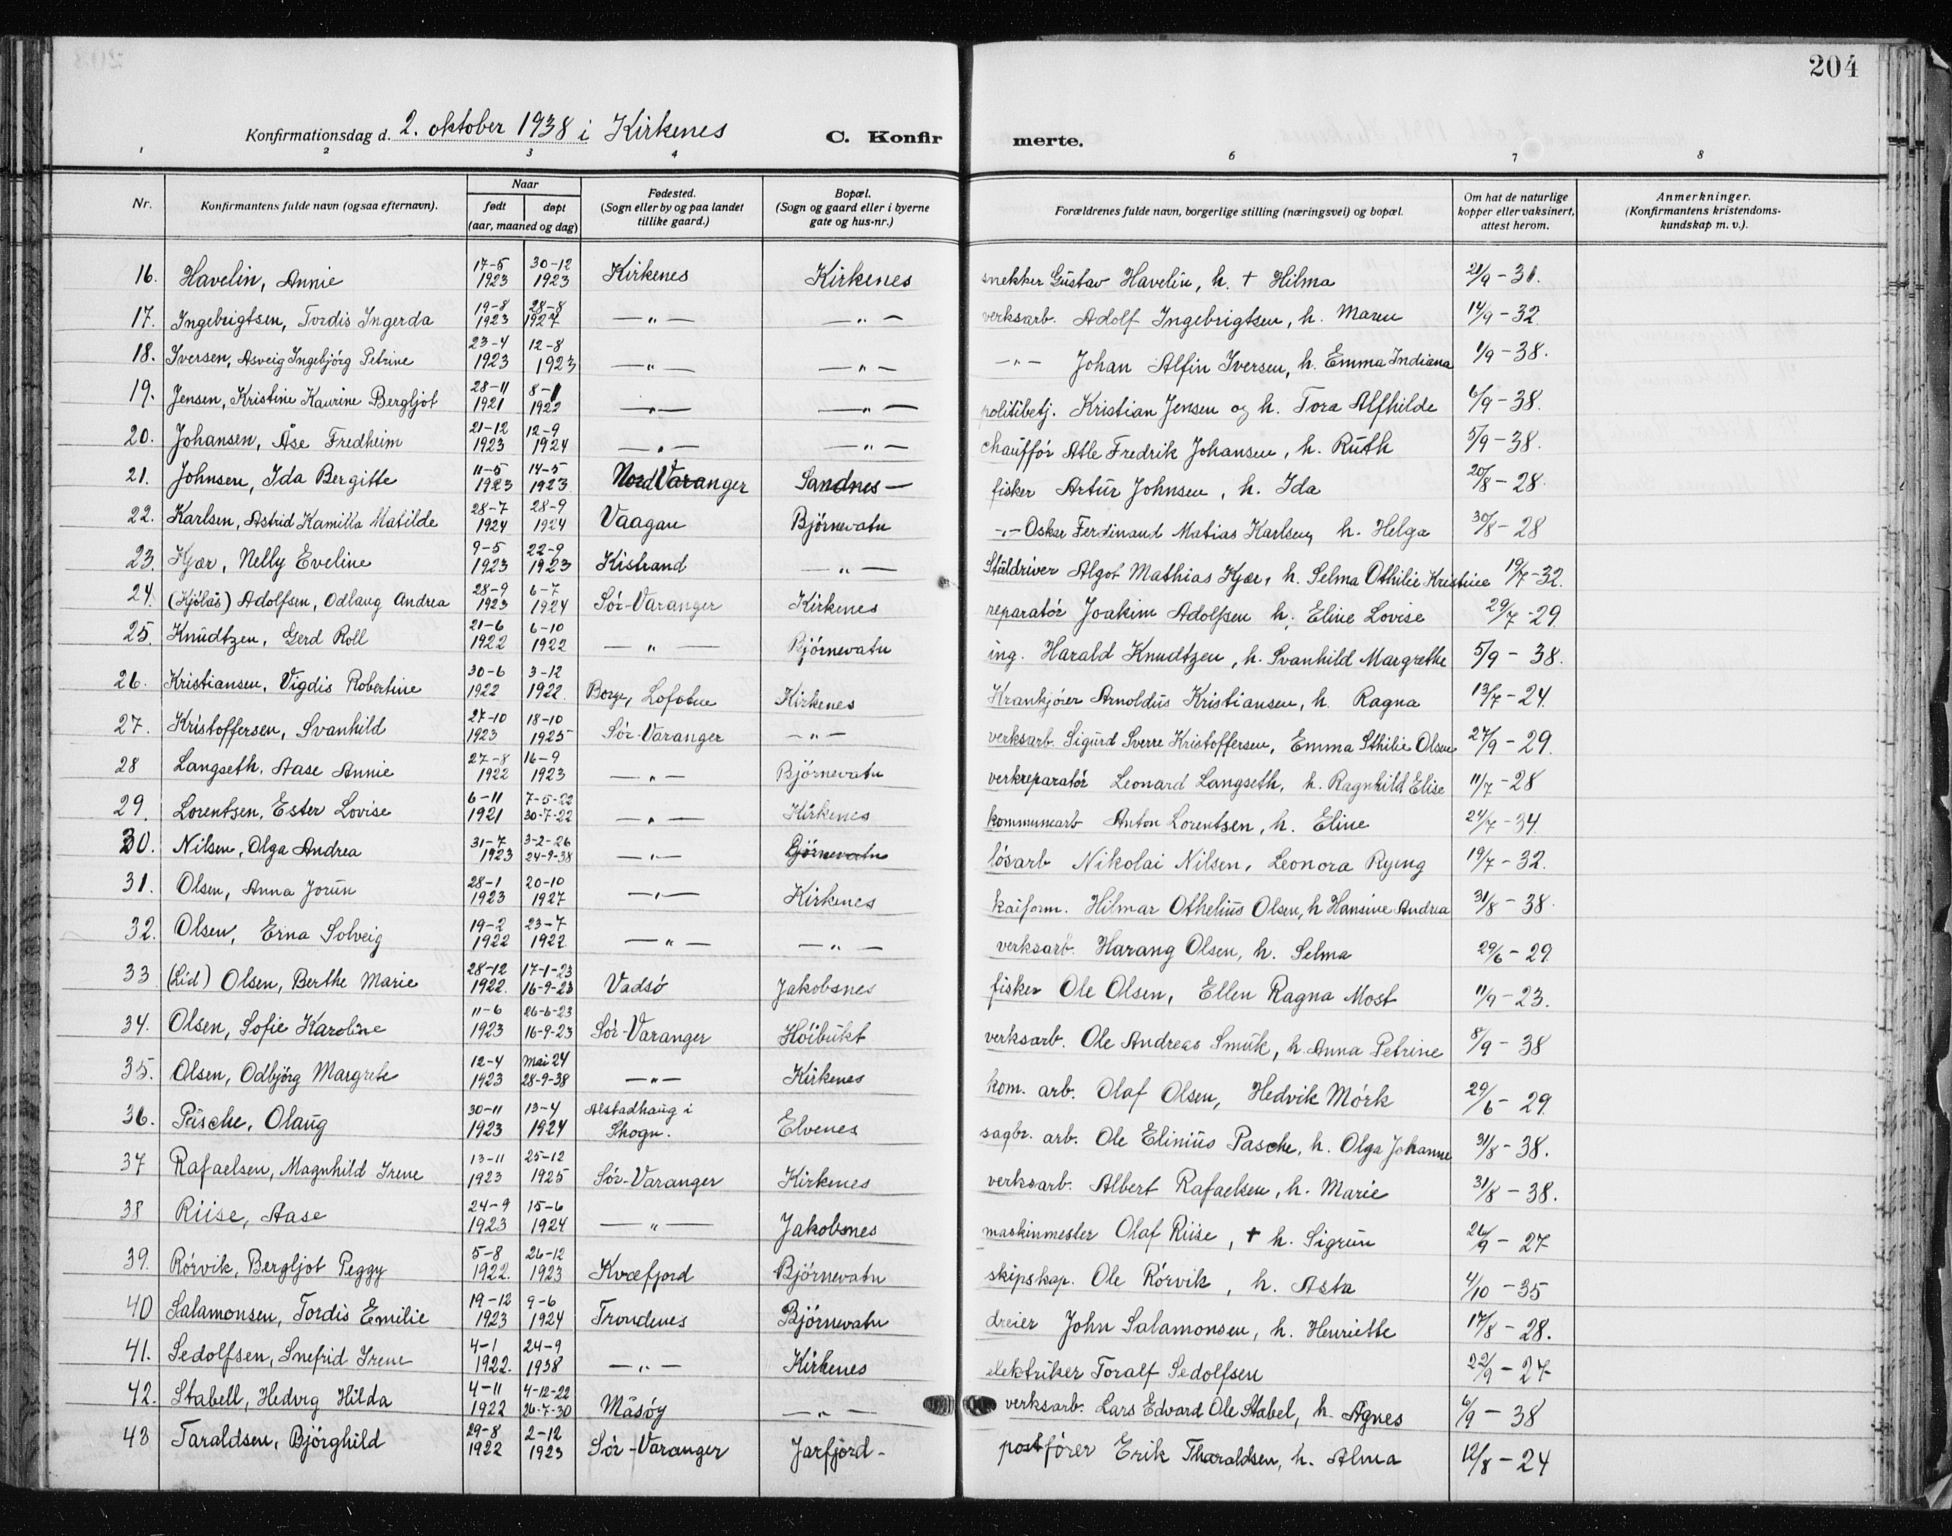 204
Konfirmationsdag d. 2. oktober 1938 i Kirkenes C. Konfir merte.
1 2 3 4 6 7 8
Nr. Konfirmantens fulde navn (ogsaa efternavn). Naar født døpt (aar, maaned og dag) Fødested. (Sogn eller by og paa landet tillike gaard.) Bopæl. (Sogn og gaard eller i byerne gate og hus-nr.) Forældrenes fulde navn, borgerlige stilling (næringsvei) og bopæl. Om hat de naturlige kopper eller vaksinert, attest herom. Anmerkninger. (Konfirmantens kristendoms-kundskap m. v.).
16. Havelin, Annie 17-5 1923 30-12 1923 Kirkenes Kirkenes snekker Gustav Havelin, h. + Hilma 21/9-31.
17. Ingebrigtsen, Tordis Ingerda 19-8 1923 28-8 1927 —"— —"— verksarb. Adolf Ingebrigtsen, h. Maren 14/9-32.
18. Iversen, Asveig Ingebjörg Petrine 23-4 1923 12-8 1923 —"— —"— —"— Johan Alfin Iversen, h. Emma Indiana 1/9-38.
19. Jensen, Kristine Kaurine Bergljot 28-11 1921 8-1 1922 —"— —"— politibetj. Kristian Jensen og h. Tora Alfhilde 6/9-38.
20. Johansen, Åse Fredheim 21-12 1923 12-9 1924 —"— —"— chaufför Atle Fredrik Johansen, h. Ruth 5/9-38.
21. Johnsen, Ida Bergitte 11-5 1923 14-5 1923 Nord Varanger Sandnes — fisker Artur Johnsen, h. Ida 20/8-28.
22. Karlsen, Astrid Kamilla Matilde 28-7 1924 28-9 1924 Vaagan Björnevatn —"— Oskar Ferdinand Matias Karlsen, h. Helga 30/8-28
23. Kjær, Nelly Eveline 9-5 1923 22-9 1923 Kistrand —"— Stuldriver Algot Mathias Kjær, h. Selma Othilie Kristine 19/7-32.
24. (Kjölås) Adolfsen, Odlaug Andrea 28-9 1923 6-7 1924 Sör-Varanger Kirkenes reparatör Joakim Adolfsen h. Eline Lovise 29/7-29.
25. Knudtzen, Gerd Roll 21-6 1922 6-10 1922 —"— Björnevatn ing. Harald Knudtzen, h. Svanhild Margrethe 5/9-38.
26. Kristiansen, Vigdis Robertine 30-6 1922 3-12 1922. Borge, Lofoten Kirkenes Krankjörer Arnoldus Kristiansen, h. Ragna 13/7-24.
27. Kristoffersen, Svanhild 27-10 1923 18-10 1925 Sör-Varanger —"— verksarb. Sigurd Sverre Kristoffersen, Emma Othilie Olsen 27/9-29.
28 Langseth, Aase Annie 27-8 1922 16-9 1923 —"— Björnevatn verkreparatör Leonard Langseth, h. Ragnhild Elise 11/7-28
29. Lorentsen, Ester Lovise 6-11 1921 7-5-22 30-7-22 —"— Kirkenes kommunearb Anton Lorentsen, h. Eline 24/7-34.
30. Nilsen, Olga Andrea 31-7 1923 3-2-26 24-9-38 —"— Björnevatn lösarb Nikolai Nilsen, Leonora Ryeng 19/7-32.
31. Olsen, Anna Jorun 28-1 1923 20-10 1927 —"— Kirkenes kaiform. Hilmar Othelius Olsen, h Hansine Andrea 31/8-38.
32. Olsen, Erna Solveig 19-2 1922 23-7 1922 —"— —"— verksarb. Harang Olsen, h. Selma 29/6-29.
33 (Lid) Olsen, Berthe Marie 28-12 1922. 17-1-23 16-9-23 Vadsö Jakobsnes fisker Ole Olsen, Ellen Ragna Most 11/9-23.
34. Olsen, Sofie Karoline 11-6 1923 26-6-23 16-9-23 Sör-Varanger Höibukt verksarb. Ole Andreas Smuk, h. Anna Petrine 8/9-38
35. Olsen, Odbjörg Margrete 12-4 1923 mai 24 28-9-38 —"— Kirkenes kom. arb. Olaf Olsen, Hedvik Mörk 29/6-29.
36. Påsche, Olaug 30-11 1923 13-4 1924 Alstadhaug i Skogn. Elvenes sagbr. arb. Ole Elinius Pasche, h. Olga Johanne 31/8-38.
37 Rafaelsen, Magnhild Irene 13-11 1923 25-12 1925 Sör-Varanger Kirkenes verksarb. Albert Rafaelsen, h. Marie 31/8-38.
38 Riise, Aase 24-9 1923 15-6 1924 —"— Jakobsnes maskinmester Olaf Riise, + h. Sigrun 26/9-27
39. Rörvik, Bergljot Peggy 5-8 1922. 26-12 1923 Kvæfjord Björnevatn skipskap. Ole Rörvik, h. Asta 4/10-35
40 Salamonsen, Tordis Emilie 19-12 1923 9-6 1924 Trondenes Björnevatn dreier John Salamonsen, h. Henriette 17/8-28.
41. Sedolfsen, Snefrid Irene 4-1 1922. 24-9 1938 —"— Kirkenes elektriker Toralf Sedolfsen 22/9-27
42. Stabell, Hedvig Hilda 4-11 1922 4-12-22 26-7-30 Måsöy —"— verksarb. Lars Edvard Ole Stabel, h. Agnes 6/9-38
43 Taraldsen, Björghild 29-8 1922 2-12 1923 Sör-Varanger Jarfjord- postförer Erik Tharaldsen, h. Alma 12/8-24